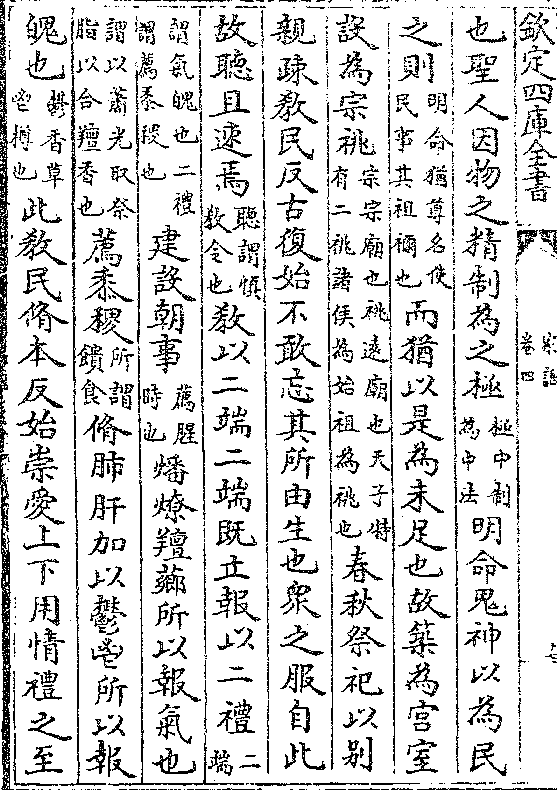 欽定四庫全書
家語
卷四
也聖人因物之精制為之極極中制為中法明命鬼神以為民
之則明命猶尊名使民事其祖禰也而猶以是為未足也故築為宮室
設為宗祧宗宗廟也祧遠廟也天子特有二祧諸侯為始祖為祧也春秋祭祀以別
親疎教民反古復始不敢忘其所由生也衆之服自此
故聽且速焉聽謂慎教令也教以二端二端既立報以二禮二端
謂氣魄也二禮謂薦黍稷也建設朝事薦腥時也燔燎羶薌所以報氣也
謂以蕭光取祭脂以合羶香也薦黍稷所謂饋食脩肺肝加以鬱鬯所以報
魄也鬱香草鬯樽也此教民脩本反始崇愛上下用情禮之至